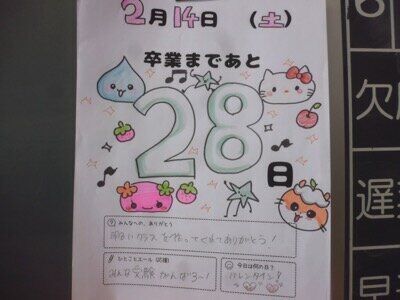 2月14日 (土)
卒業まであと
28
日
みんなへの、ありがとう
明るいクラスを作ってくれてありがとう!
ひとことエール(応援)
みんな受験がんばろ〜!
今日は何の日?
バレンタイン
6
欠
遅
早